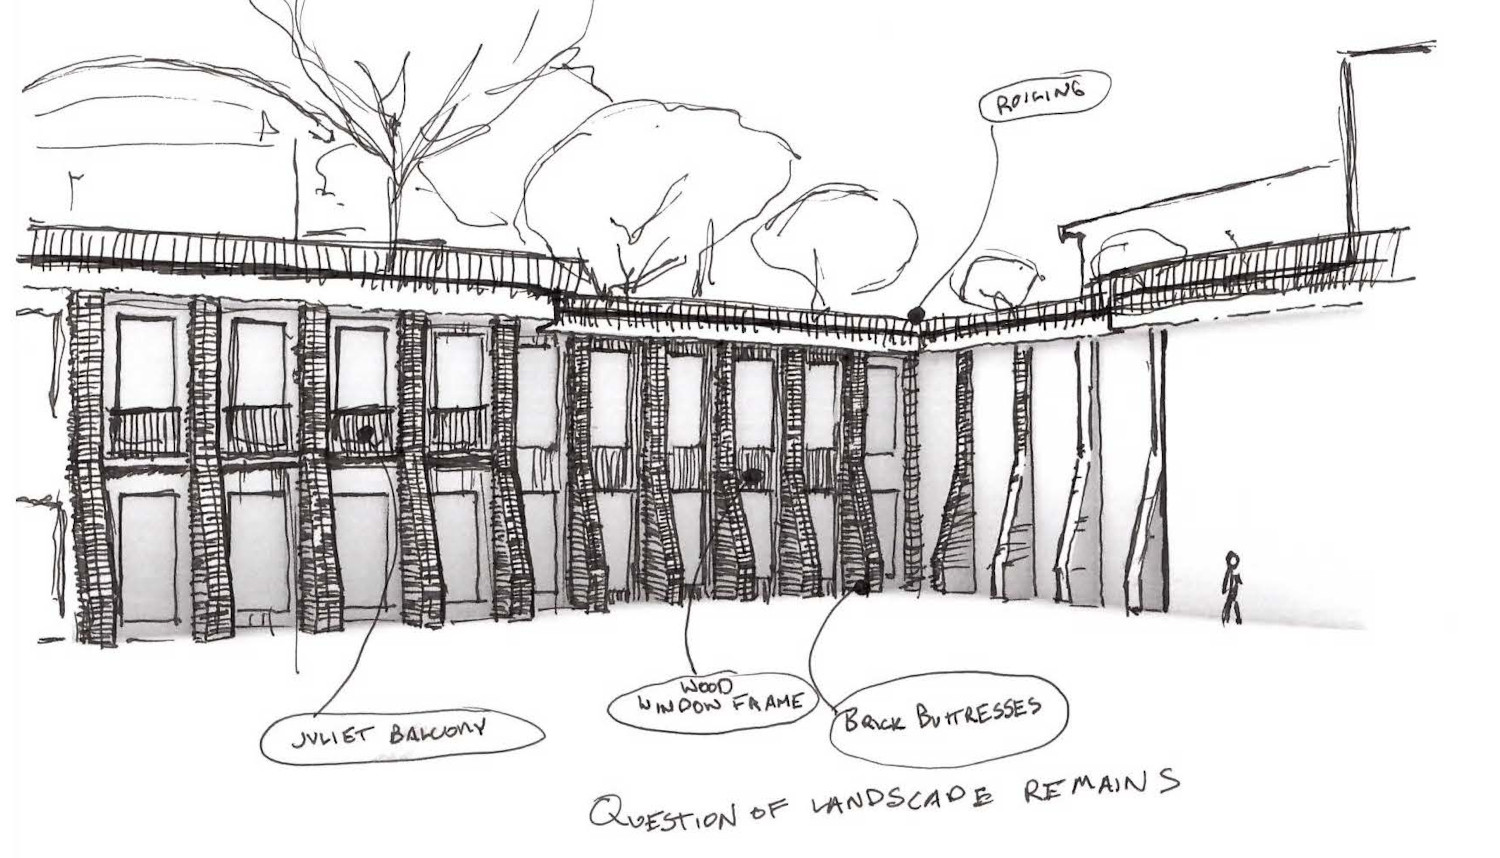 JULIET BALCONY
WOOD
WINDOW FRAME
BRICK BUTTRESSES
QUESTION OF LANDSCADE REMAINS